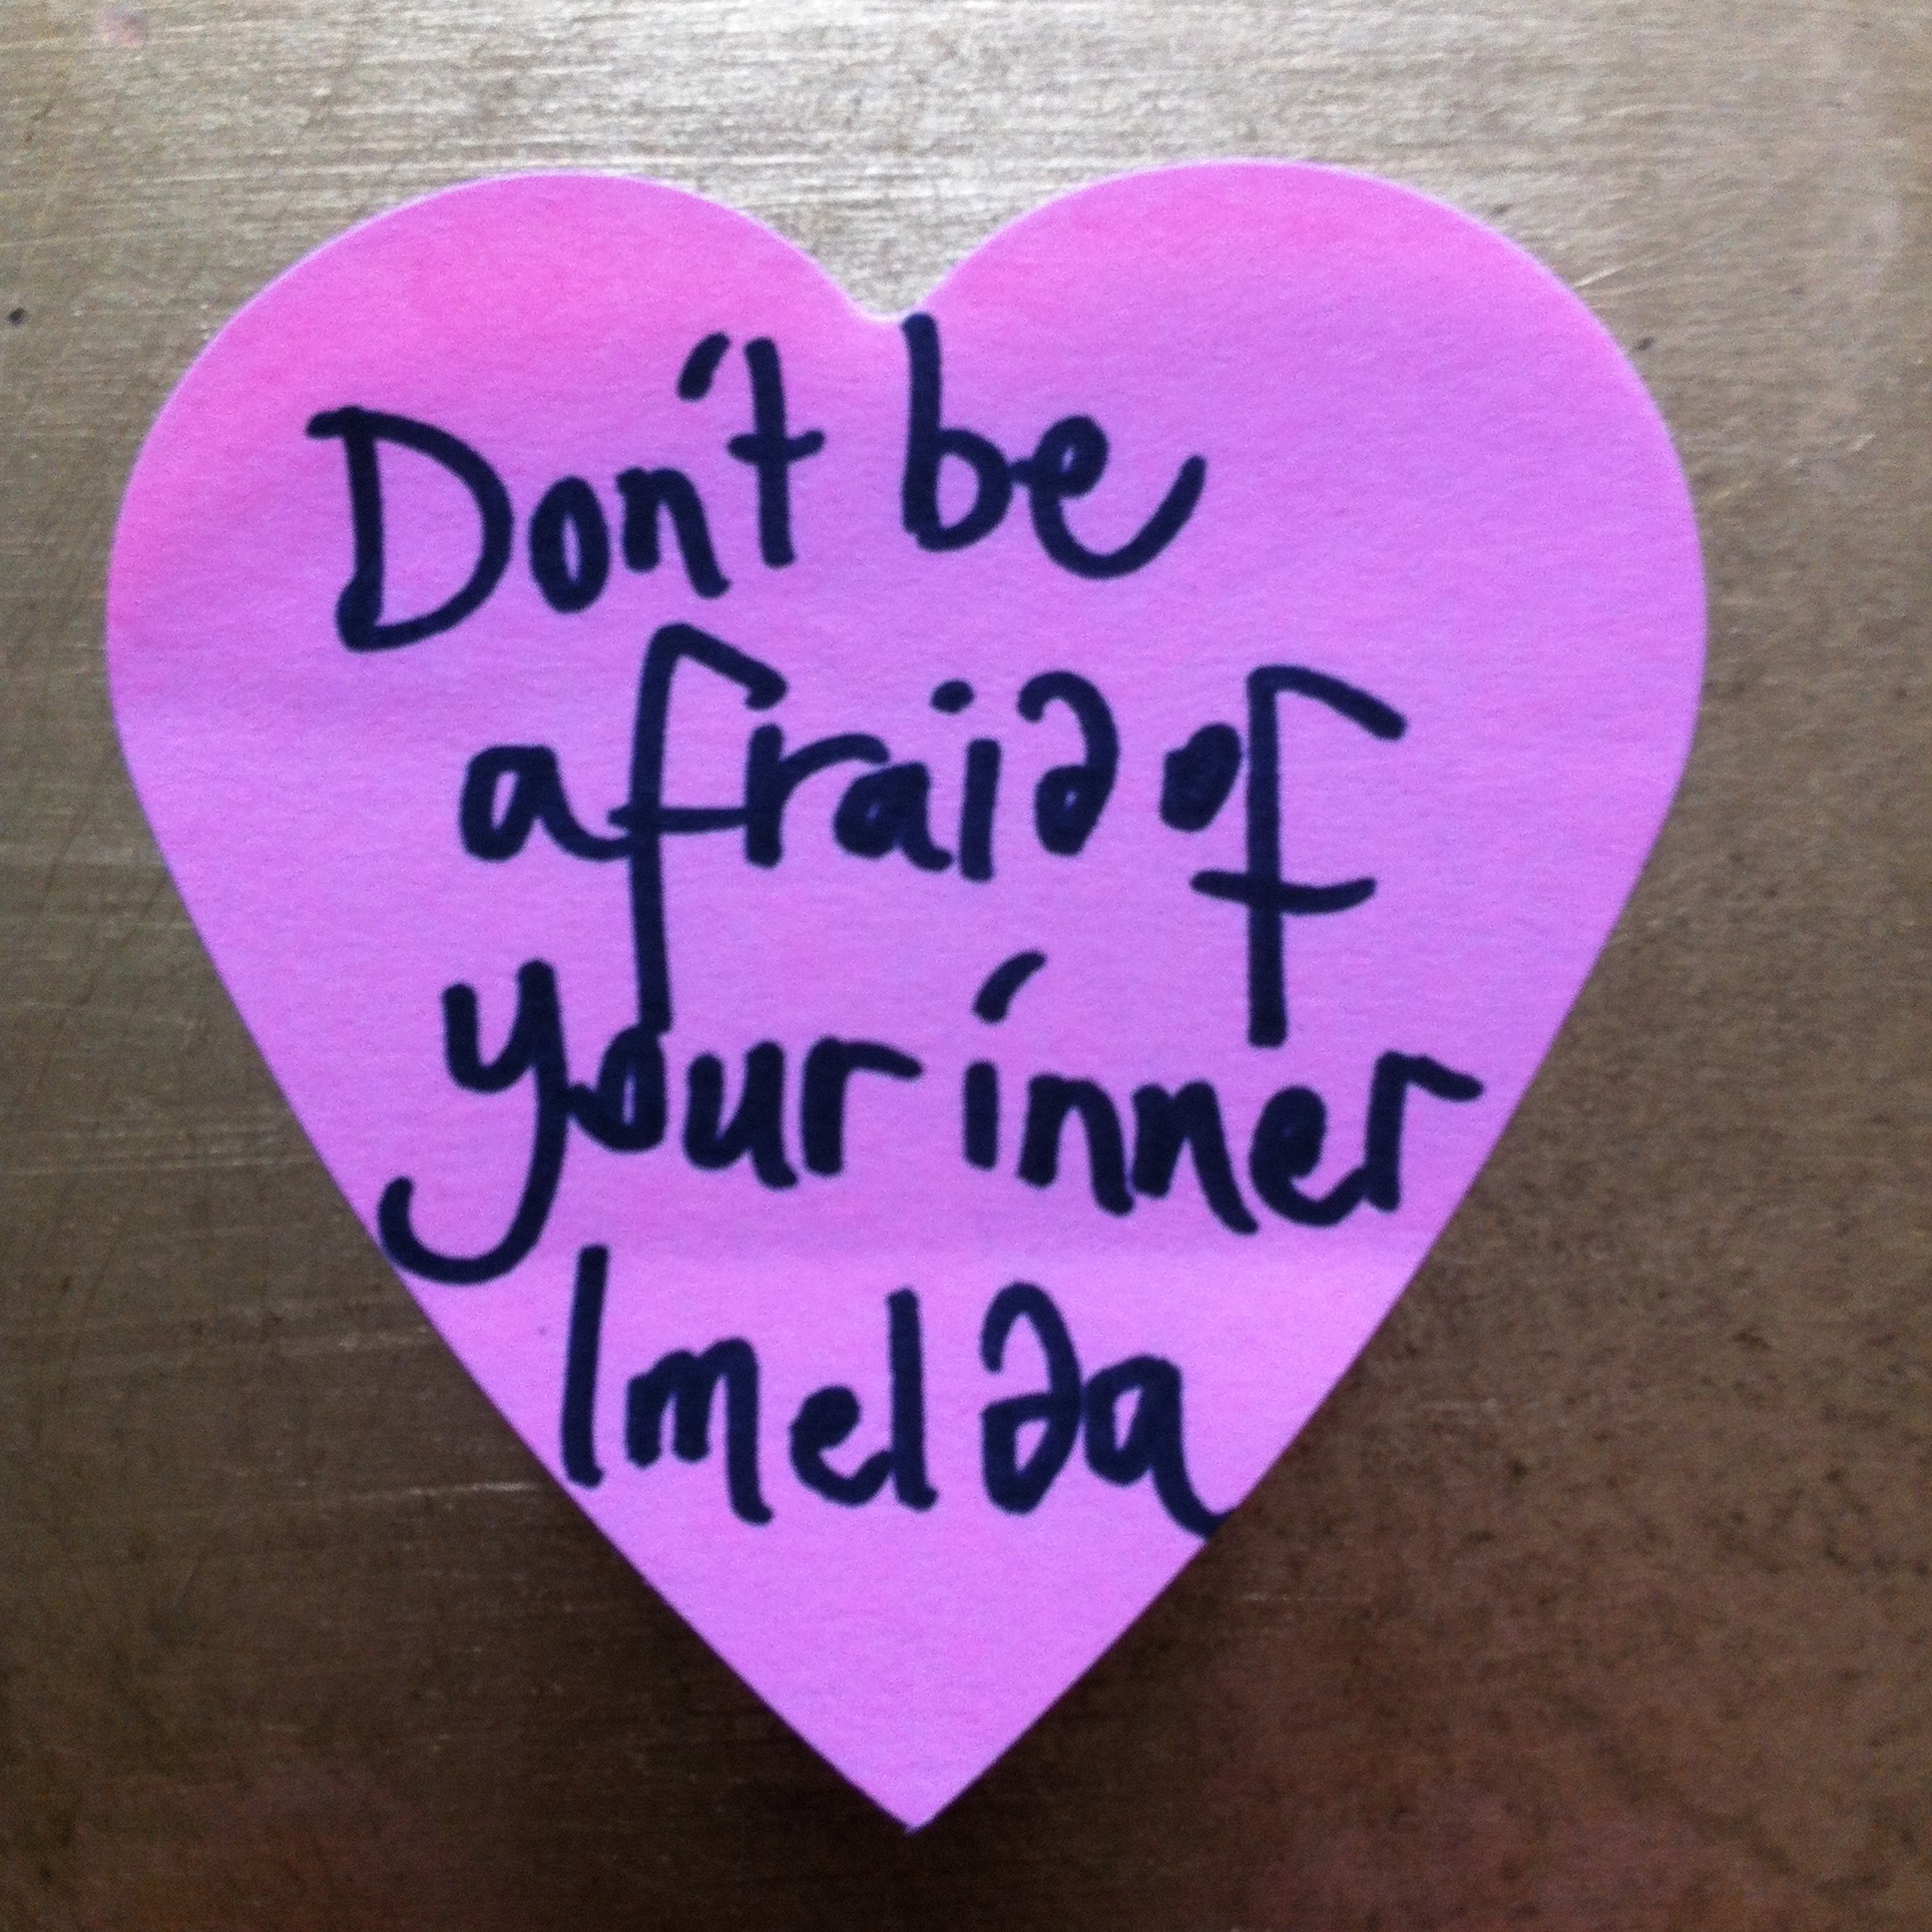 Don't be
afraid of
your inner
Imelda